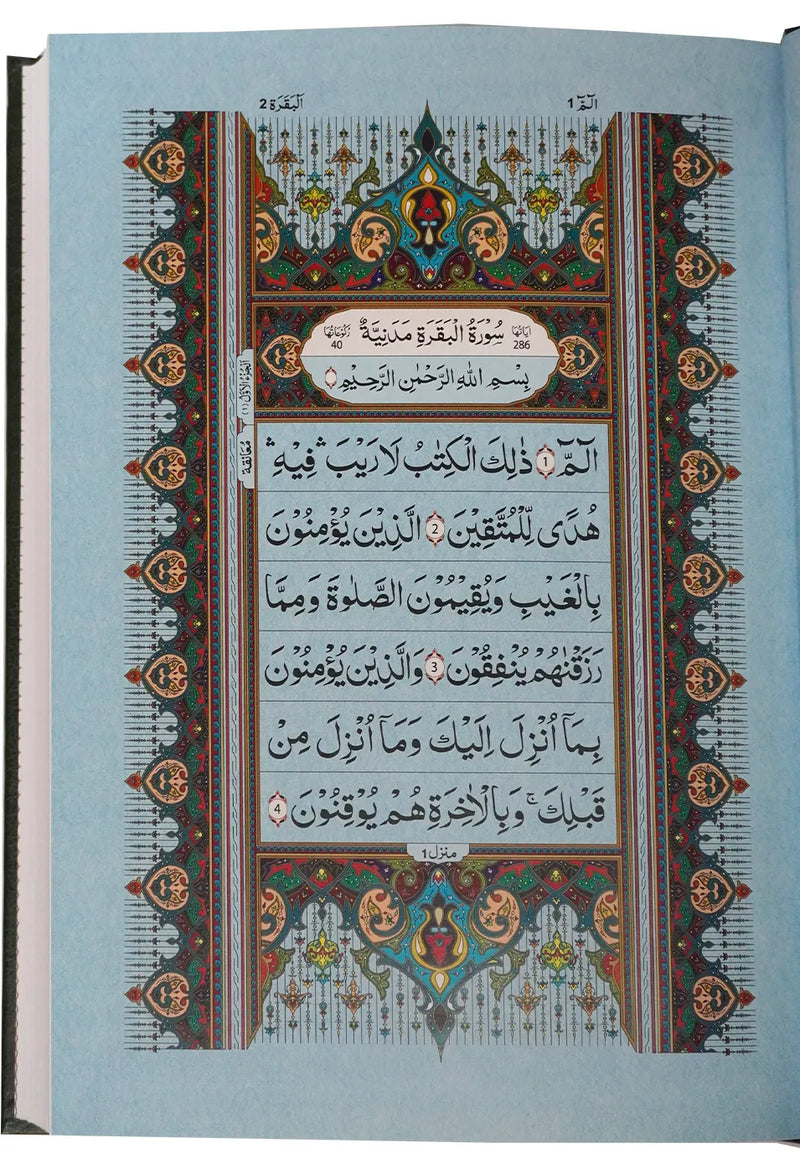 الٓمّٓ 1
اَلْبَقَرَة 2
اٰيَاتُهَا 286
سُوْرَةُ الْبَقَرَةِ مَدَنِيَّةٌ
رُكُوْعَاتُهَا 40
بِسْمِ اللهِ الرَّحْمٰنِ الرَّحِيْمِ
اَلْجُزْءُ الْاَوَّلُ (١)
مُعَانِقَة
الٓمّٓ 1 ذٰلِكَ الْكِتٰبُ لَا رَيْبَ ۛ فِيْهِ ۛ
هُدًى لِّلْمُتَّقِيْنَ 2 الَّذِيْنَ يُؤْمِنُوْنَ
بِالْغَيْبِ وَيُقِيْمُوْنَ الصَّلٰوةَ وَمِمَّا
رَزَقْنٰهُمْ يُنْفِقُوْنَ 3 وَالَّذِيْنَ يُؤْمِنُوْنَ
بِمَآ اُنْزِلَ اِلَيْكَ وَمَآ اُنْزِلَ مِنْ
قَبْلِكَ ۚ وَبِالْاٰخِرَةِ هُمْ يُوْقِنُوْنَ 4
منزل 1